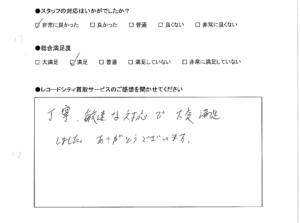 ●スタッフの対応はいかがでしたか？
☑非常に良かった　□良かった　□普通　□良くない　□非常に良くない
●総合満足度
□大満足　☑満足　□普通　□満足していない　□非常に満足していない
●レコードシティ買取サービスのご感想を聞かせてください
丁寧、敏速な対応で大変満足
しました。ありがとうございます。